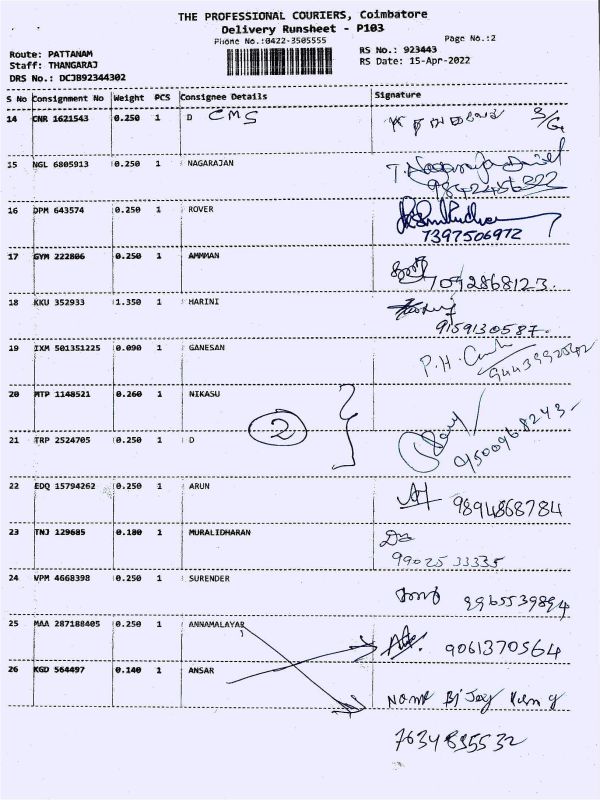 THE PROFESSIONAL COURIERS, Coimbatore
Delivery Runsheet - P103
Phone No.:0422-3505555
Page No.:2
Route: PATTANAM
RS No.: 923443
Staff: THANGARAJ
RS Date: 15-Apr-2022
DRS No.: DCJB92344302
S No Consignment No Weight PCS Consignee Details Signature
14 CNR 1621543 0.250 1 D CMS
15 NGL 6805913 0.250 1 NAGARAJAN
9842456322
16 DPM 643574 0.250 1 ROVER
7397506972
17 GYM 222806 0.250 1 AMMMAN
7092868123.
18 KKU 352933 1.350 1 HARINI
9159130587.
19 IXM 501351225 0.090 1 GANESAN P.H.
20 MTP 1148521 0.260 1 NIKASU
2
21 TRP 2524705 0.250 1 D
9500968243
22 EDQ 15794262 0.250 1 ARUN
9894868784
23 TNJ 129685 0.180 1 MURALIDHARAN
99025 33335
24 VPM 4668398 0.250 1 SURENDER
9965539894
25 MAA 287188405 0.250 1 ANNAMALAYAR
9061370564
26 KGD 564497 0.140 1 ANSAR
Name Bijay
7634835532